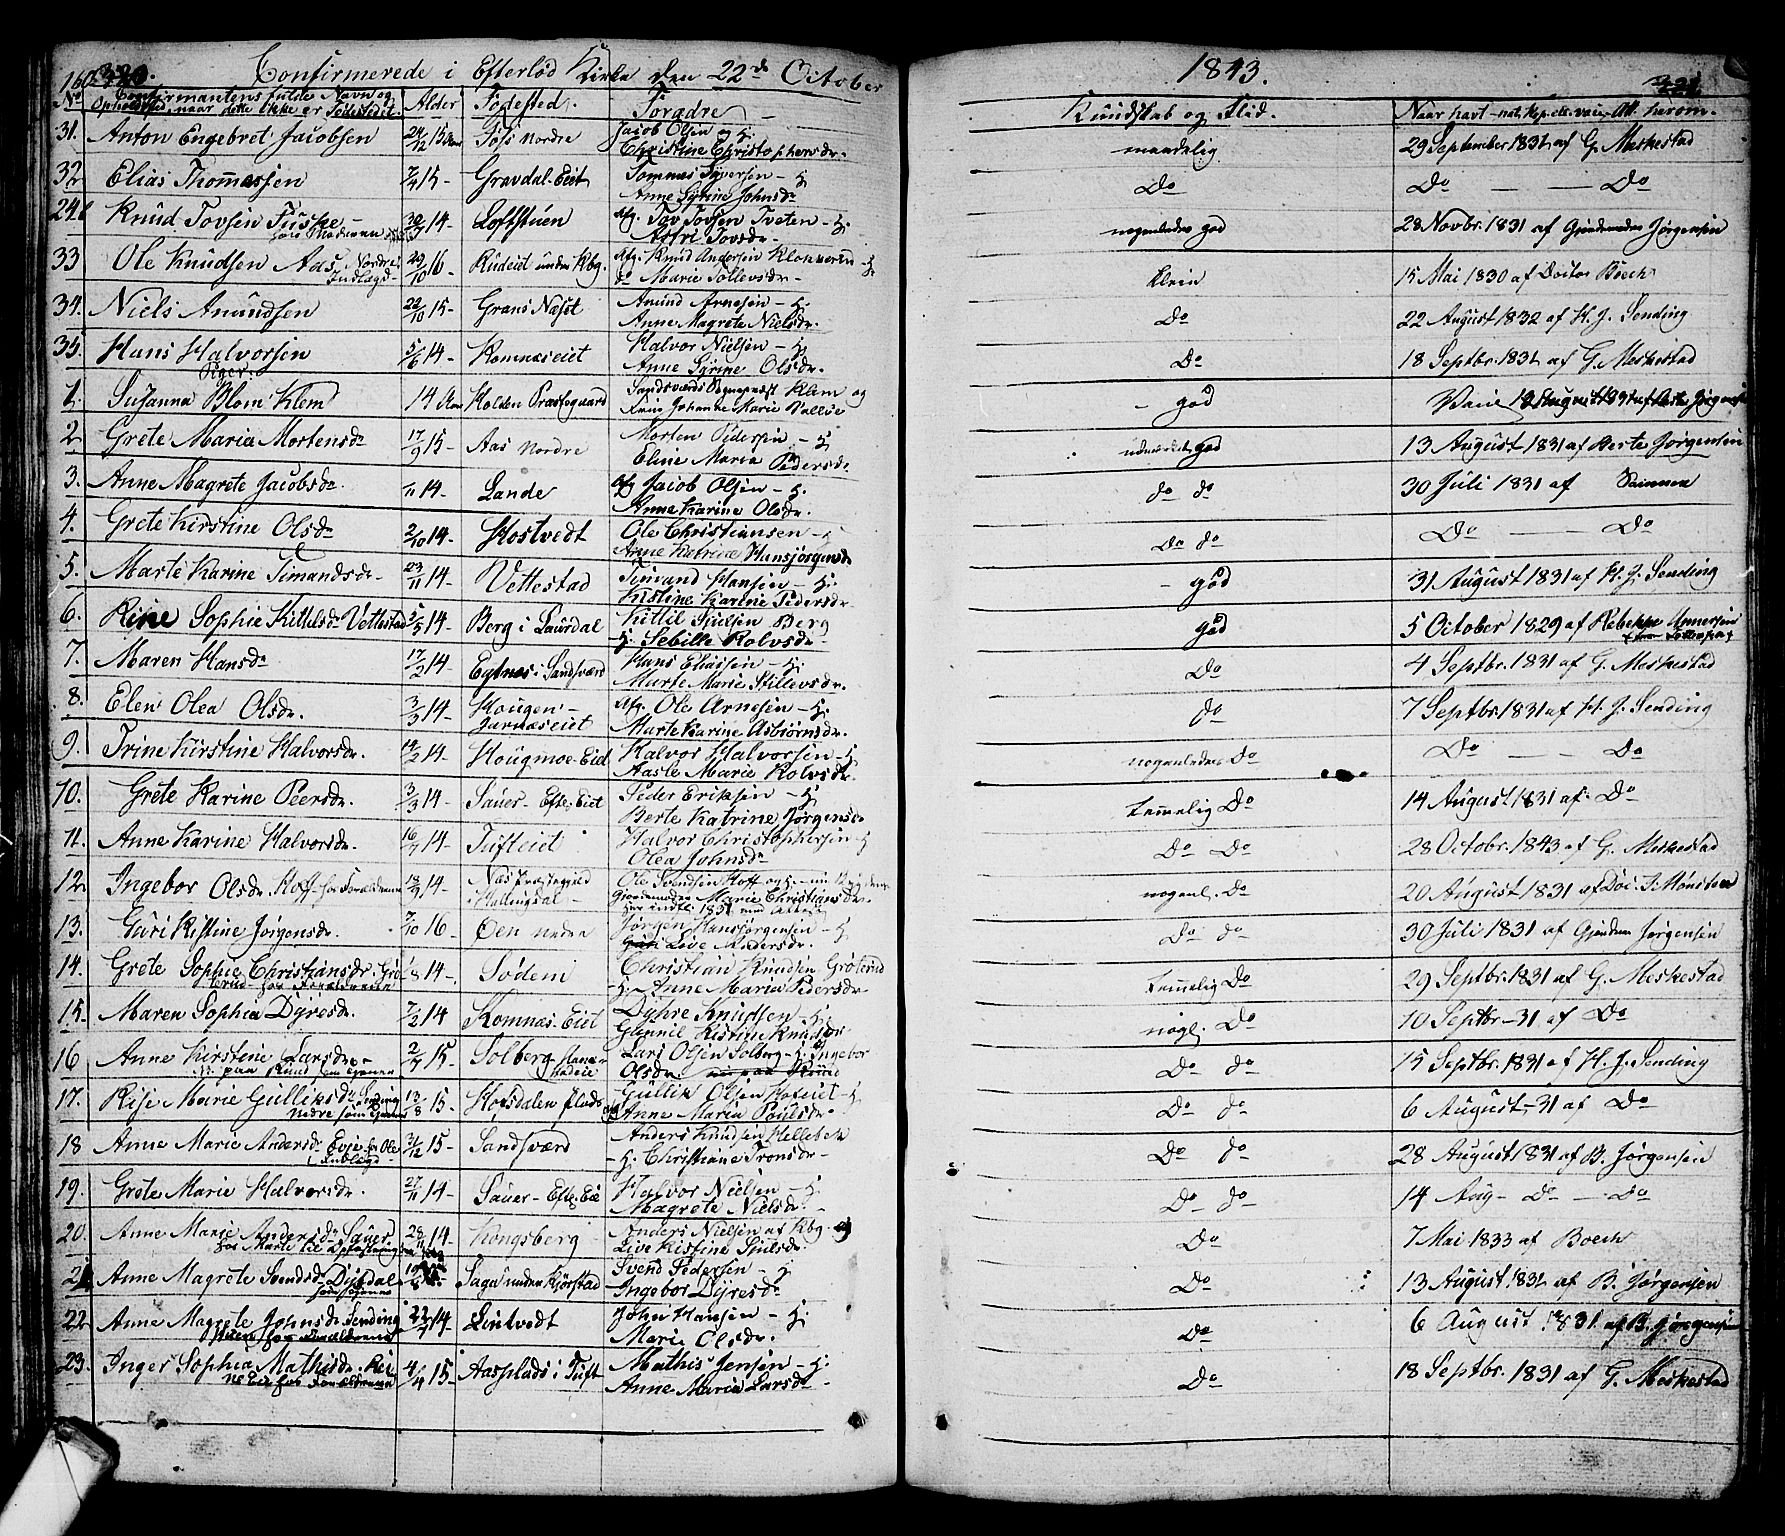 160 320. Confirmerede i Efterlöd Kirke den 22de October 1843. 221
No Confirmantens fulde Navn og Opholdsted naar dette ikke er Fødestedet. Alder Födested. Forædre Kundskab og Flid. Naar havt nat. Kop. ell. vacc. Att. herom.
31. Anton Engebret Jacobsen 24/12 15 Aar Föss Nordre Jacob Olsen og H. Christine Christophersdr. maadelig 29 September 1831 af G. Meskestad
32 Elias Thomassen 7/4 15 Gravdal-Eiet Tommas Syversen - H. Anne Syrine Johnsdr Do Do — Do
24b Knud Tovsen Fuske 30/7 14 Loftstuen Afg. Tov Tovsen Tveten - H. Asfri Tovsdr. nogenledes god 28 Novbr. 1831 af Gjordemoder Jørgensen
33 Ole Knudsen Aas Nordre Indlagd 29/10 16 Rudeiet under Kbg. Afg. Knud Andersen Klokkerin - H. do Marie Tollevsdr. klein 15 Mai 1830 af Doctor Boeck
34. Niels Anundsen 22/10 15 Grans Næset Anund Arnesen - H. Anne Magrete Nielsdr. Do 22 August 1832 af H. J. Sending
35. Hans Halvorsen 5/6 14 Komnæseiet Halvor Nielsen - H. Anne Syrine Olsdr. Do 18 Septbr. 1831 af G. Meskestad
Piger.
1. Susanna Blom Klem 14 Aar Holden Præstegaard Sandsværds Sognepræst Klem og Frue Johanne Marie god Vacc. 12 August 1831 af Jørgensen
2. Grete Maria Mortensdr 17/9 15 Aas Nordre Morten Pedersen - H. Eline Maria Pedersdr. udmærket god 13 August 1831 af Berte Jørgensen
3. Anne Magrete Jacobsdr. 14 Lande Afg Jacob Olsen - H. Anne Karine Olsdr. do do 30 Juli 1831 af Sammen
4. Grete Kirstine Olsdr 2/10 14 Hostvedt Ole Christiansen - H. Anne Katrine Hansjörgensdr Do do Do — Do
5. Marte Karine Timandsdr. 23/11 14 Vettestad Timand Hansen - H. Kistine Karine Pedersdr. god 31 August 1831 af H. J. Sending
6. Rine Sophie Kittelsdr Vettestad 5/5 14 Berg i Laurdal Kittil Sjulsen Berg H. Sebille Rolvsdr. god 5 October 1829 af Rebekke Annersen
7. Maren Hansdr 17/2 14 Egtnes i Sandsværd Hans Eliassen - H. Marte Marie Stillevsdr. Do 4 Septbr. 1831 af G. Meskestad
8. Elen Olea Olsdr. 3/3 14 Hougen - Jarnæseiet Afg. Ole Arnesen - H. Marte Karine Asbjörnsdr. do 7 Septbr 1831 af H. J. Sending
9. Trine Kirstine Halvorsdr. 14/2 14 Hougmoe-Eiet Halvor Halvorsen - H. Aasle Marie Rolvsdr. nogenledes Do Do — Do
10. Grete Karine Peersdr. 3/3 14 Sauer - Efte. Eiet Peder Eriksen - H. Berte Katrine Jørgensdr temmelig Do 14 August 1831 af Do
11. Anne Karine Halvorsdr. 16/7 14 Tufteiet Halvor Christophersen - H Olea Johnsdr Do Do 28 Octobr. 1843 af G. Meskestad
12 Ingebor Olsdr Hoff hos Forældrene 13/9 14 Næs Præstegjeld i Hallingdal Ole Svendsen Hoff og H. Gjordemoder Marie Christiansdr. Her indfl. 1831 nogenl. Do 20 August 1831 af Doc. T. Mønster
13. Guri Kistine Jørgensdr. 7/10 16 Oen nedre Jørgen Hansjørgensen - H Live Andersdr. Do do 30 Juli 1831 af Gjordem Jørgensen
14. Grete Sophie Christiansdr. Grøterud hos Forældrene 14 Södem Christian Knudsen Gröterud H. Anne Marie Pedersdr temmelig Do 29 Septbr. 1831 af G. Meskestad
15. Maren Sophia Dyresdr. 7/2 14 Komnæs-Eiet Dyhre Knudsen - H. Gunnil Kistine Knudsdr nogl. Do 10 Septbr - 31 af Do
16 Anne Kirstine Larsdr. 2/7 15 Solberg Lars Olsen Solberg - H. Ingebor Olsdr Do do 15 Septbr. 1831 af H. J. Sending
17. Rise Marie Gulliksdr 13/8 15 Horsdalen Plads Gullik Olsen Hofeiet - H Anne Maria Poulsdr Do do 6 August - 31 af Do
18 Anne Marie Andersdr Evje hos Ole Indlagd 31/12 15 Sandsværd Anders Knudsen Hellebek H. Christiane Tronsdr Do do 28 August 1831 af B. Jørgensen
19. Grete Marie Halvorsdr. 27/11 14 Sauer - Efte. Eie Halvor Nielsen - H. Magrete Nielsdr. Do do 14 Aug - Do — Do
20. Anne Marie Andersdr Sauer hos Marte til Opfostring 28/11 14 Kongsberg Anders Nielsen af Kbg. og Live Kistine Sjulsdr. Do 7 Mai 1833 af Boeck
21 Anne Magrete Svendsd. Dyrdal 15 Saga under Kjörstad Svend Pedersen - H Ingebor Dyresdr Do 13 August 1831 af B. Jørgensen
22 Anne Magrete Johnsdr. Sending hos Forældrene 22/7 14 Lintvedt John Hansen - H. Marie Olsdr. Do 6 August 1831 af B. Jørgensen
23. Inger Sophia Mathisdr. hos Forældrene 4/4 15 Aasplads i Tuft Mathis Jensen - H. Anne Maria Larsdr Do 18 Septbr. 1831 af G. Meskestad